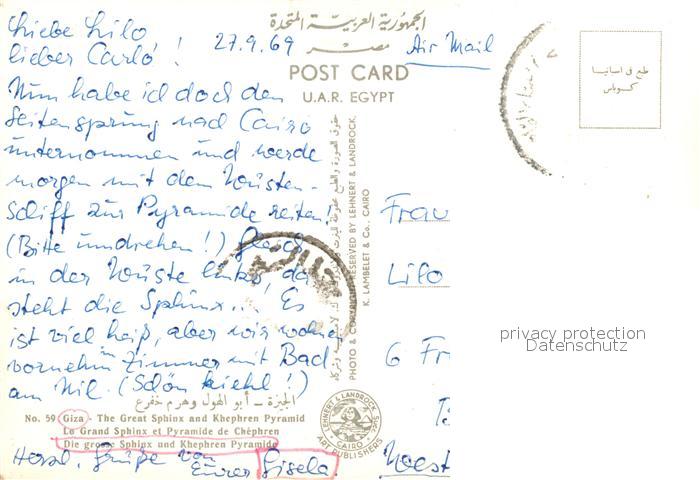 الجمهورية العربية المتحدة
مصر
POST CARD
U.A.R. EGYPT
27.9.69
Air Mail
طبع فى اسبانيا
Liebe Lilo
lieber Carlo!
Nun habe ich doch den
Seitensprung nach Cairo
unternommen und werde
morgen mit dem Wüsten-
schiff zur Pyramide reiten!
(Bitte umdrehen!) Gleich
in der Wüste links, da
steht die Sphinx... Es
ist viel heiß, aber wir wohnen
vornehm Zimmer mit Bad
am Nil. (Schön kiehl!)
الجيزة - أبو الهول وهرم خفرع
No. 59 Giza - The Great Sphinx and Khephren Pyramid
Le Grand Sphinx et Pyramide de Chéphren
Die grosse Sphinx und Khephren Pyramide
Herzl. Grüße von
Eurer Gisela.
PHOTO & COPYRIGHT RESERVED BY LEHNERT & LANDROCK
K. LAMBELET & Co., CAIRO
LEHNERT & LANDROCK SUCS
CAIRO
ART PUBLISHERS
Frau
Lilo
6 Fr
West
privacy protection
Datenschutz